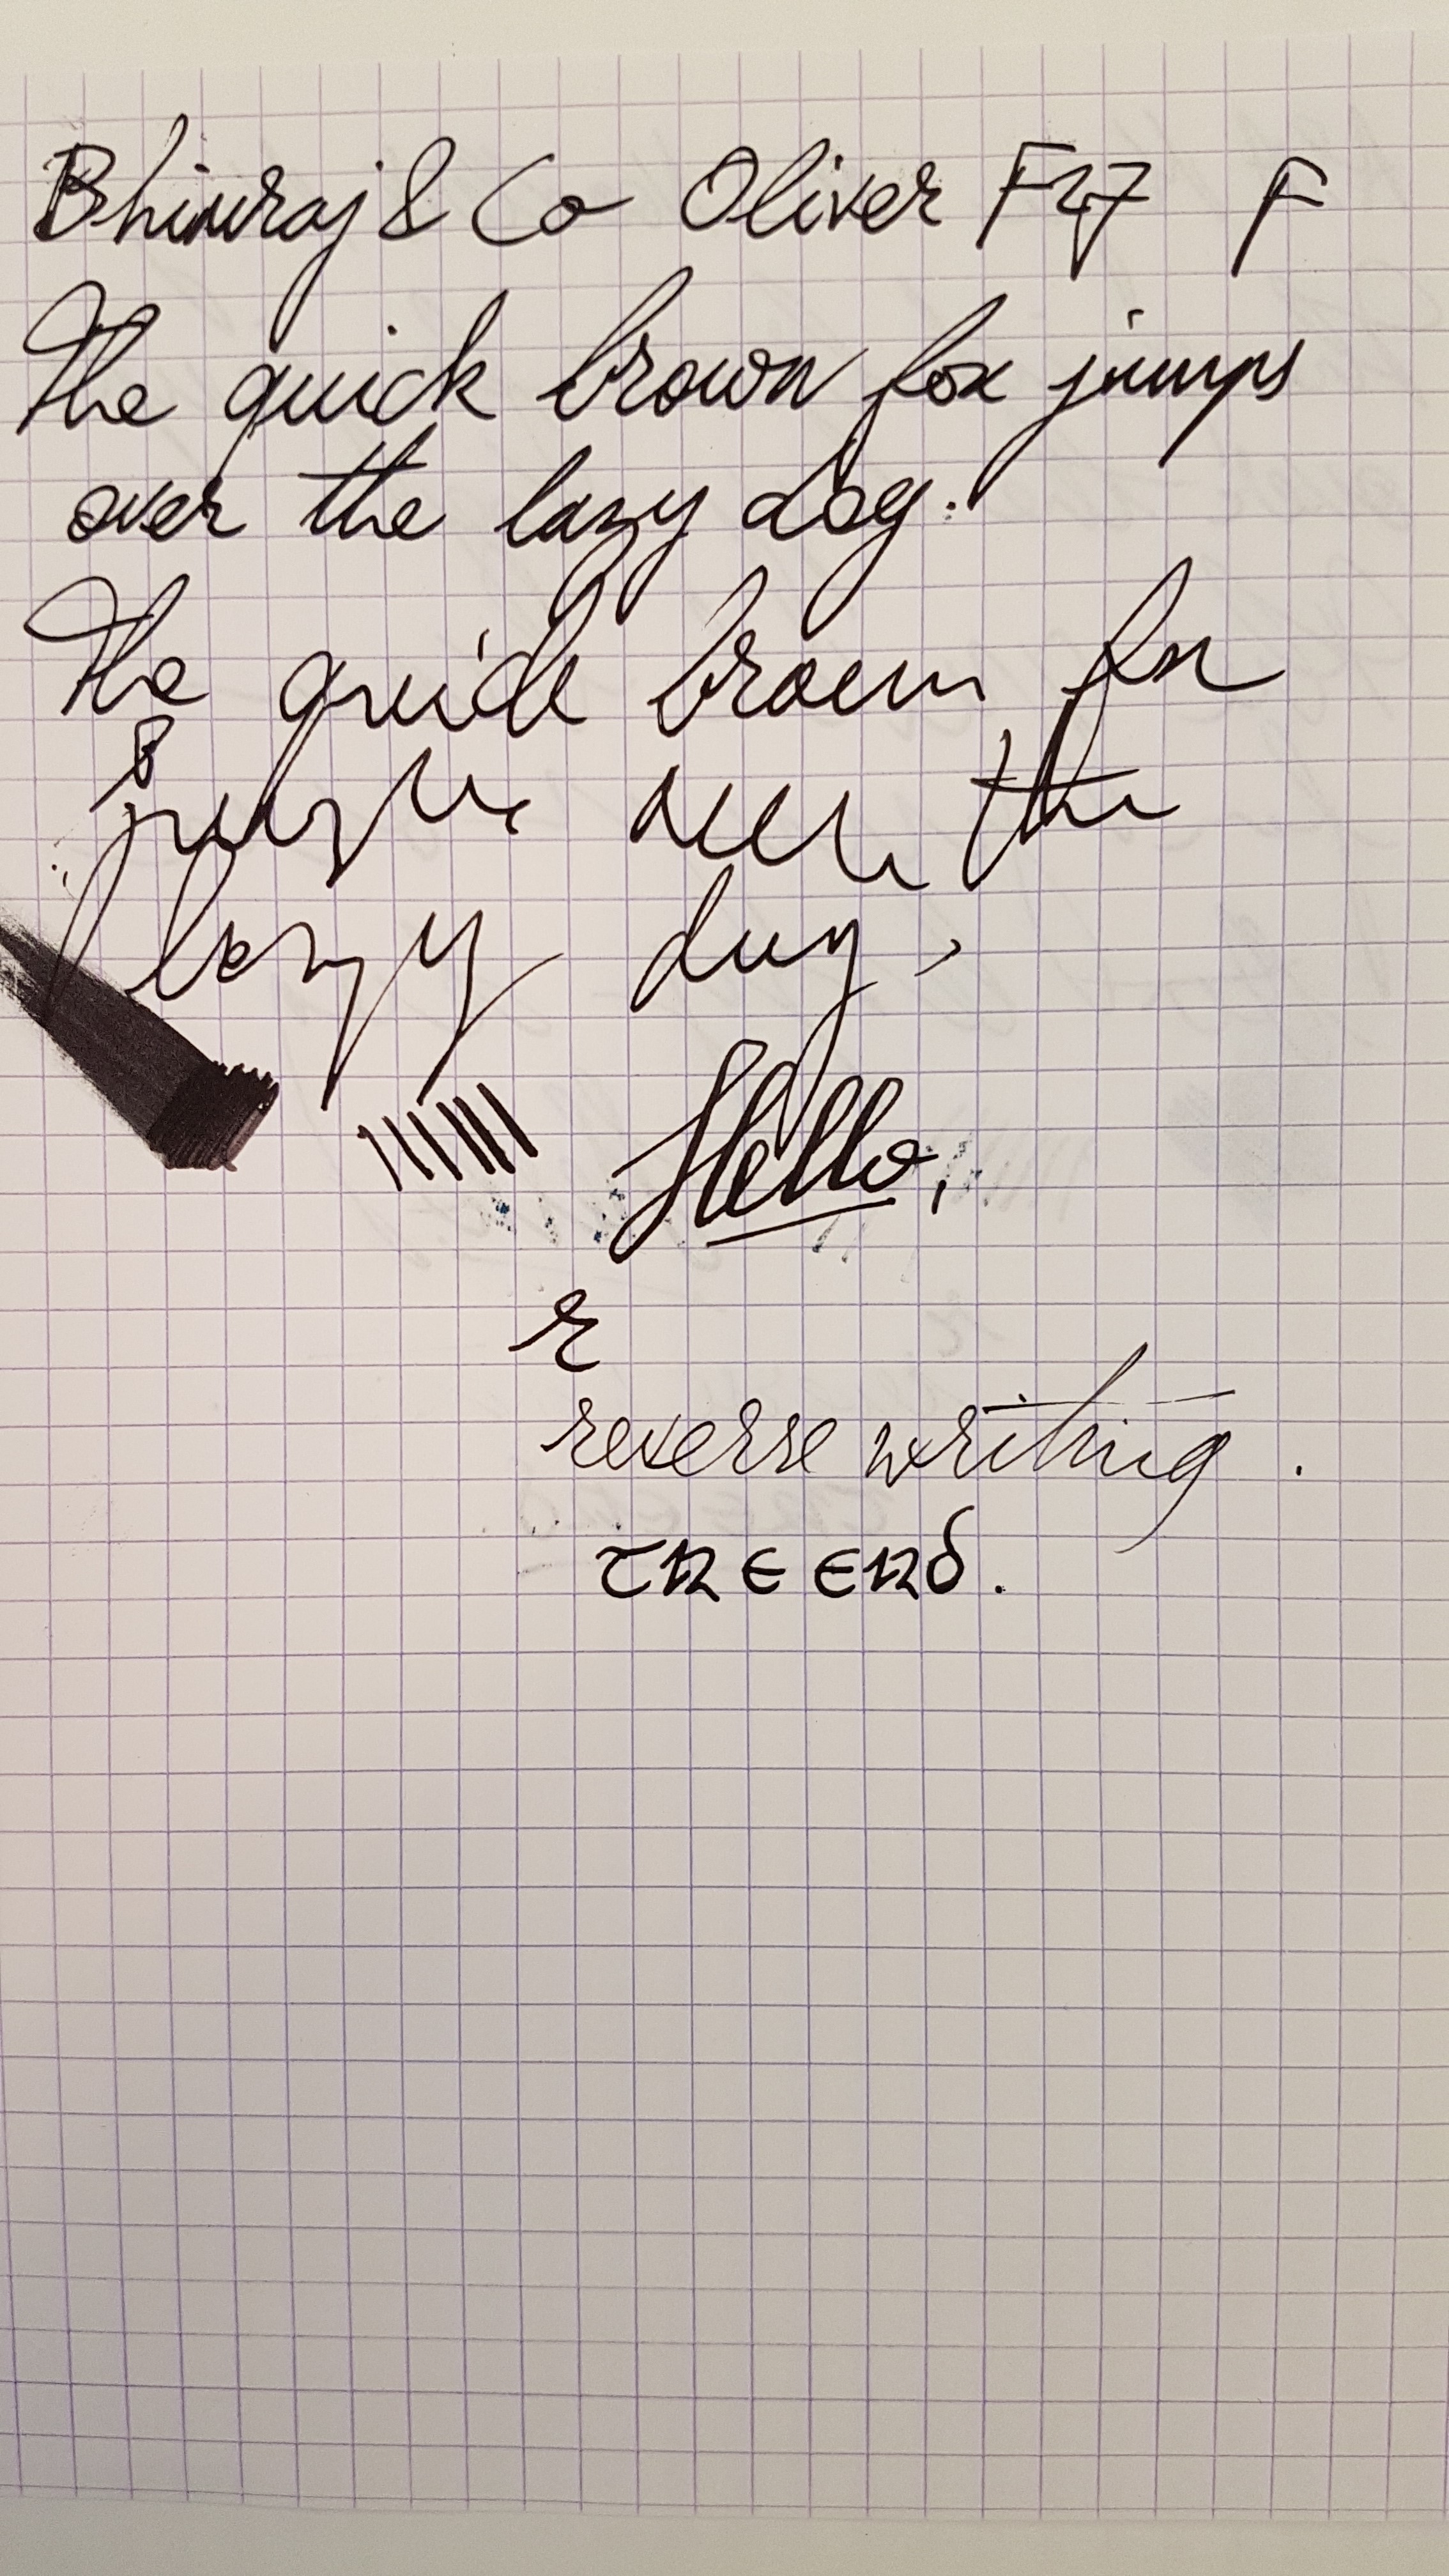 Bhimraj & Co Oliver F27 F
The quick brown fox jumps
over the lazy dog.
The quick brown fox
jumps over the
lazy dog.
Hello,
r
reverse writing.
THE END.